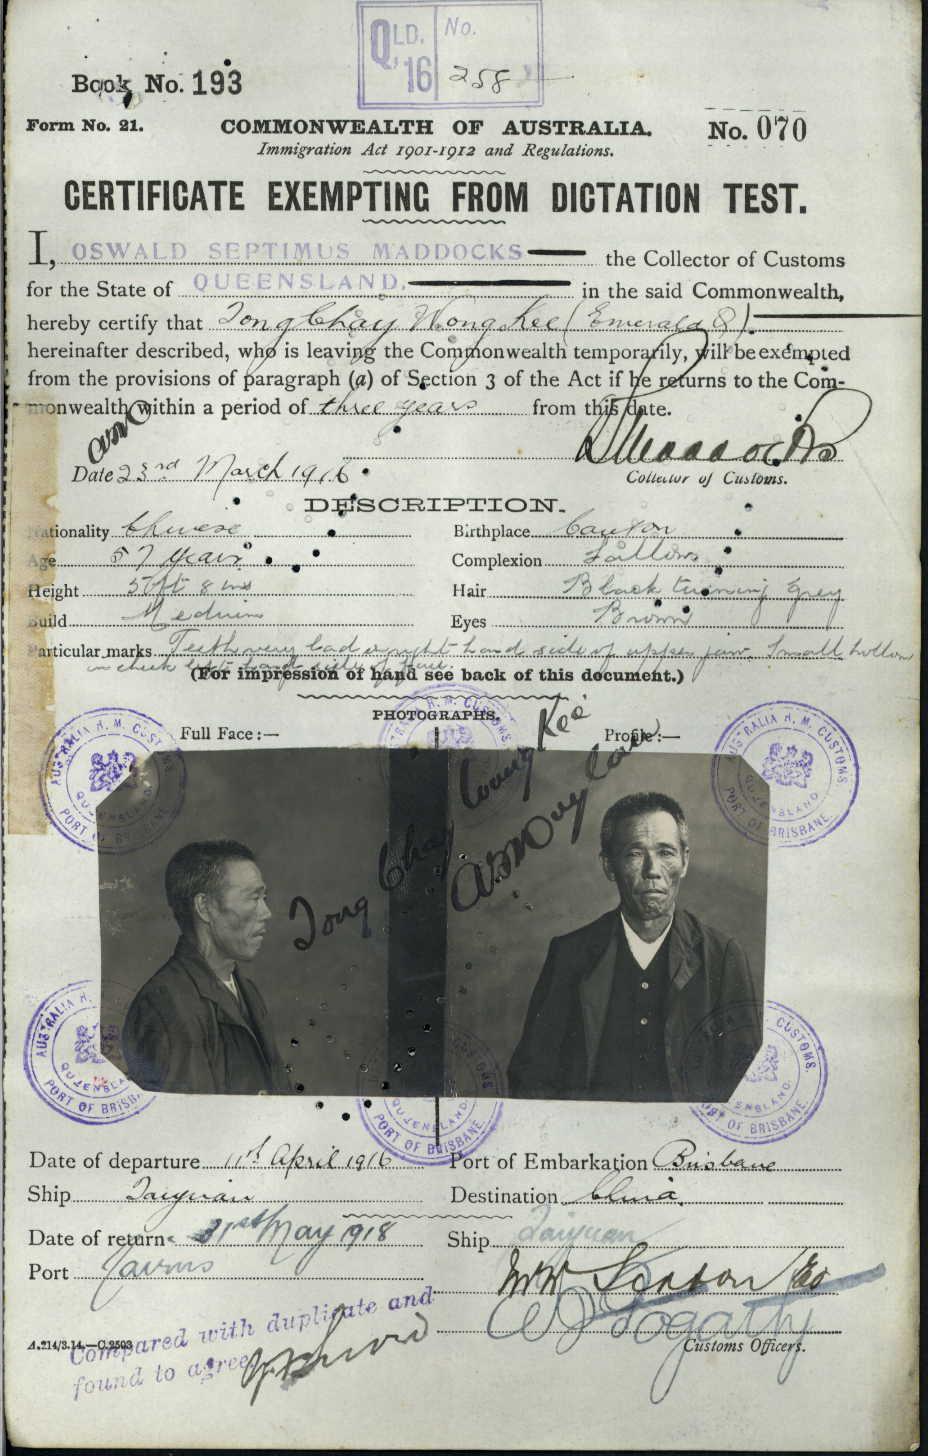 QLD. 16 No. 258
Book No. 193
Form No. 21. COMMONWEALTH OF AUSTRALIA. No. 070
Immigration Act 1901-1912 and Regulations.
CERTIFICATE EXEMPTING FROM DICTATION TEST.
I, OSWALD SEPTIMUS MADDOCKS the Collector of Customs
for the State of QUEENSLAND. in the said Commonwealth,
hereby certify that Tong Chay Wong Kee (Emerald 8).
hereinafter described, who is leaving the Commonwealth temporarily, will be exempted
from the provisions of paragraph (a) of Section 3 of the Act if he returns to the Com-
monwealth within a period of three years from this date.
Date 23rd March 1916
Collector of Customs.
DESCRIPTION.
Nationality Chinese Birthplace Canton
Age 57 years Complexion Sallow
Height 5 ft 8 ins Hair Black turning Grey
Build Medium Eyes Brown
Particular marks Teeth very bad right hand side of upper jaw. Small hollow
in cheek left hand side of face.
(For impression of hand see back of this document.)
PHOTOGRAPHS.
Full Face:— Profile:—
AUSTRALIA H. M. CUSTOMS QUEENSLAND PORT OF BRISBANE
AUSTRALIA H. M. CUSTOMS QUEENSLAND. PORT OF BRISBANE
Tong Chay Wong Kee
Date of departure 11th April 1916 Port of Embarkation Brisbane
Ship Taiyuan Destination China
Date of return 31st May 1918 Ship Taiyuan
Port Cairns
Compared with duplicate and
found to agree
A.214/3.14.—C.2503 Customs Officers.